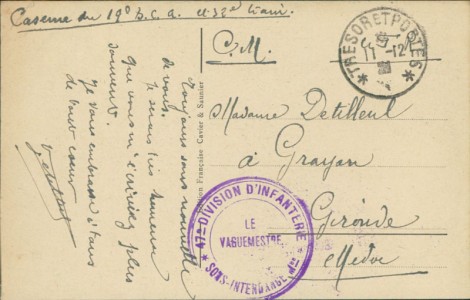 Caserne du 19e B.C.A. et 32e train.
C.M.
TRESOR ET POSTES
11 -12
Toujours sans nouvelle
de vous.
Je serais très heureux
que vous m'écriviez plus
souvent.
Je vous embrasse à tous
de tout coeur
Edition Française Cavier & Saunier
Madame Detilleul
à Grayan
Gironde
Médoc
47e DIVISION D'INFANTERIE
LE
VAGUEMESTRE
SOUS-INTENDANCE Mre